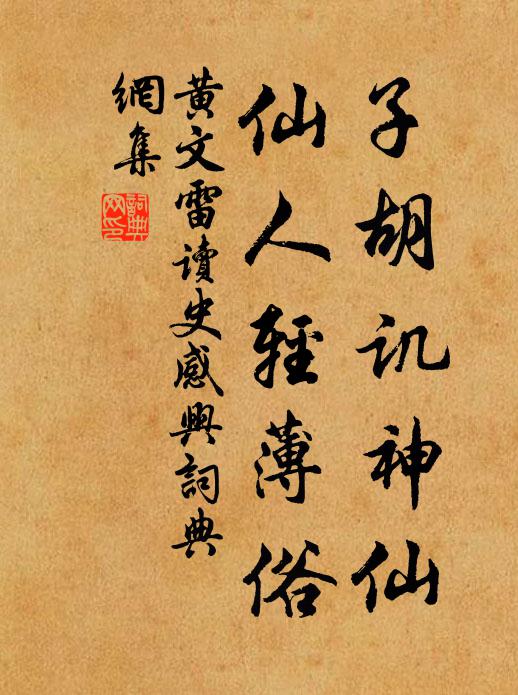 子胡讥神仙
仙人輕薄俗
黄文雷讀史感興詞典
網集
詞典
网印